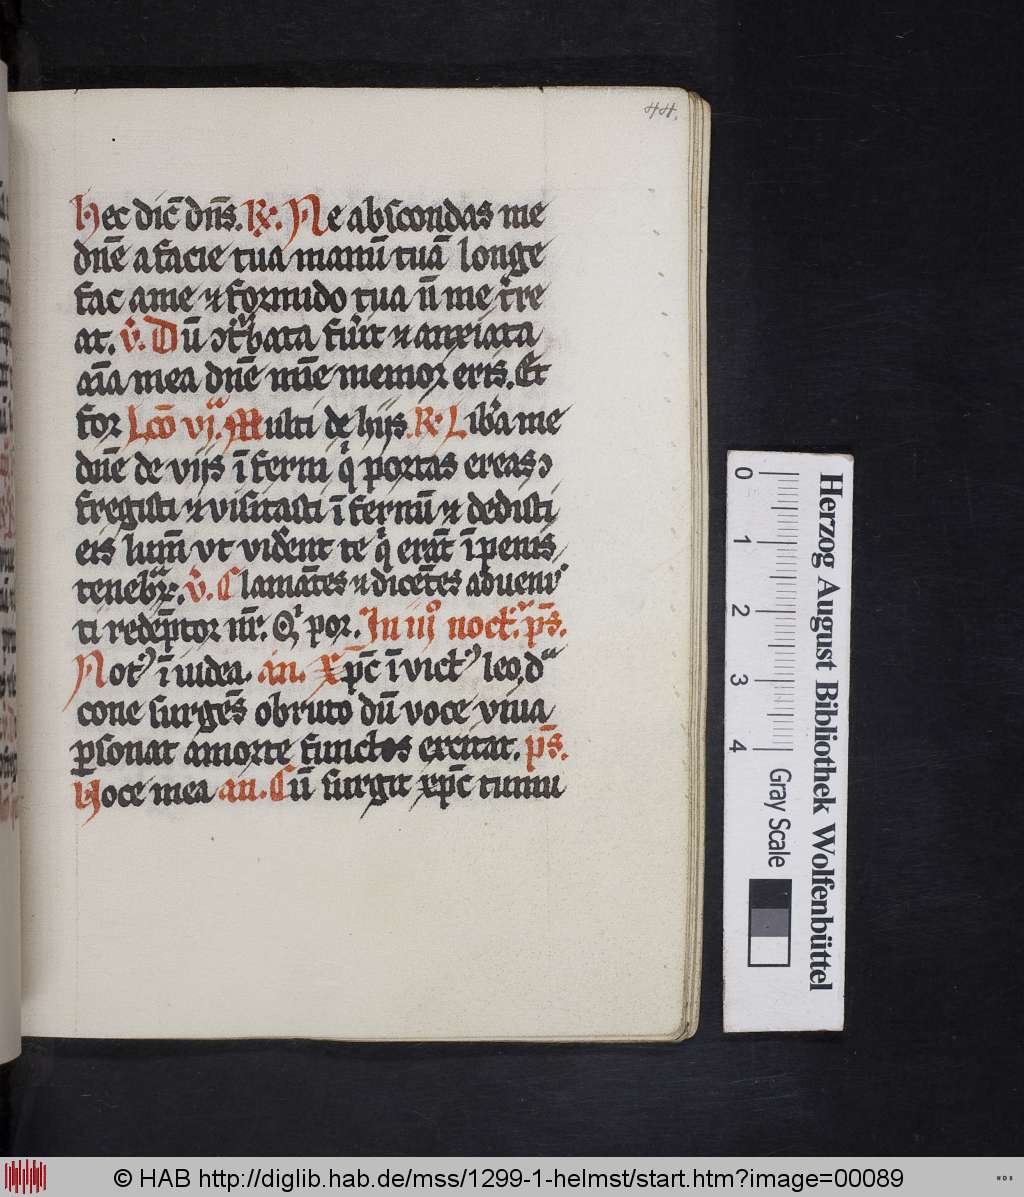 44.
Hec dic̄ dn̄s. R̄. Ne abscondas me
dn̄e a facie tua manū tuā longe
fac a me ⁊ formido tua n̄ me t̾re
at. v̄. Dū ɔt̾bata fu̾it ⁊ anxiata
aīa mea dn̄e mīe memor eris. Et
for Lcō vjᵃ. Multi de hijs. R̄. Lib̾a me
dn̄e de vijs īferni qͥ portas ereas ɔ
fregisti ⁊ visitasti īfernū ⁊ dedisti
eis lum̄ vt vid̾ent te qͥ erāt ī penis
tenebꝝ. v̄. Clamātes ⁊ dicētes aduenis
ti redēptor nr̄. Qͥ por. In iijᵒ noct. pēs.
Notꝰ ī iudea. an. Xp̄c ī victꝰ leo, dᵃ
cone surgēs obruto dū voce viua
ꝑsonat a morte functos excitat. pēs.
Uoce mea an. Cū surgit xp̄c tumu
0 1 2 3 4
Gray Scale
Herzog August Bibliothek Wolfenbüttel
© HAB http://diglib.hab.de/mss/1299-1-helmst/start.htm?image=00089